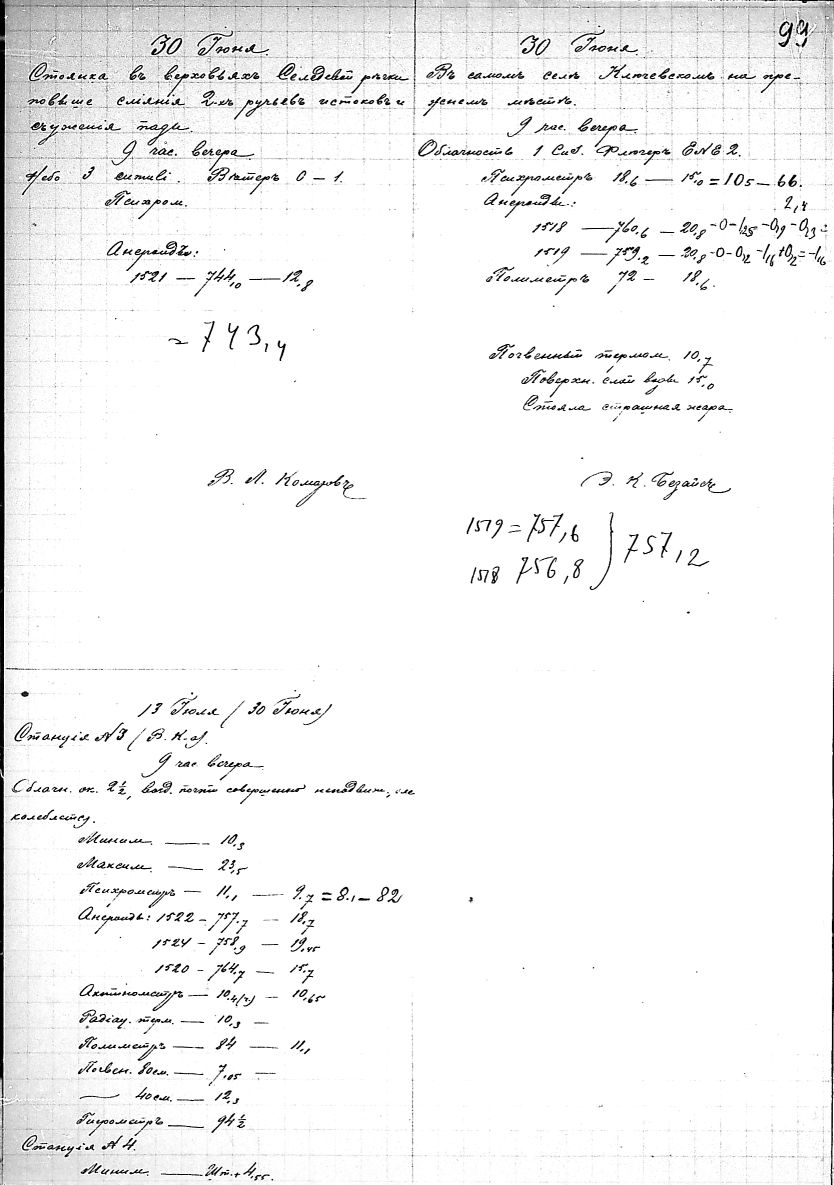 99
30 Іюня.
Стоянка въ верховьяхъ Селдевой рѣчки
повыше сліянія 2-хъ ручьевъ истоковъ и
съуженія пади.
9 час. вечера
Небо 3 Вѣтеръ 0 – 1.
Психром.
Анероидъ:
1521 — 744,0 — 12,8
= 743,4
В. Л. Комаровъ
30 Іюня
Въ самомъ селѣ Ключевскомъ на пре-
жнемъ мѣстѣ.
9 час. вечера.
Облачность 1 Флюгеръ ENE 2.
Психрометръ 18,6 — 15,0 = 10,5 — 66.
2,4
Анероиды:
1518 — 760,6 — 20,8 -0 -1,25 -0,9 -0,23 =
1519 — 759,2 — 20,8 -0 -0,12 -1,16 +0,12 = -1,16
Полиметръ 72 — 18,6.
Почвенный термом. 10,7
Поверхн. слой воды 15,0
Стояла страшная жара.
Э. К. Безайсъ
1519 = 757,6
1518 756,8 } 757,2
13 Іюля (30 Іюня)
Станція №3 (В. К-а).
9 час. вечера
Облачн. ок. 2 1/2, возд. почти совершенно неподвиж., еле
колеблется.
Миним. — 10,3
Максим. — 23,5
Психрометръ — 11,1 — 9,7 = 8,1 — 82
Анероиды: 1522 – 757,7 — 18,7
1524 – 758,9 — 19,45
1520 – 764,7 — 15,7
Актинометръ — 10,4(ч) — 10,65
Радіац. терм. — 10,3 —
Полиметръ — 84 — 11,1
Почвен. 80см. — 7,05 —
— 40см. — 12,3
Гигрометръ — 94 1/2
Станція №4.
Миним. — +4,55.